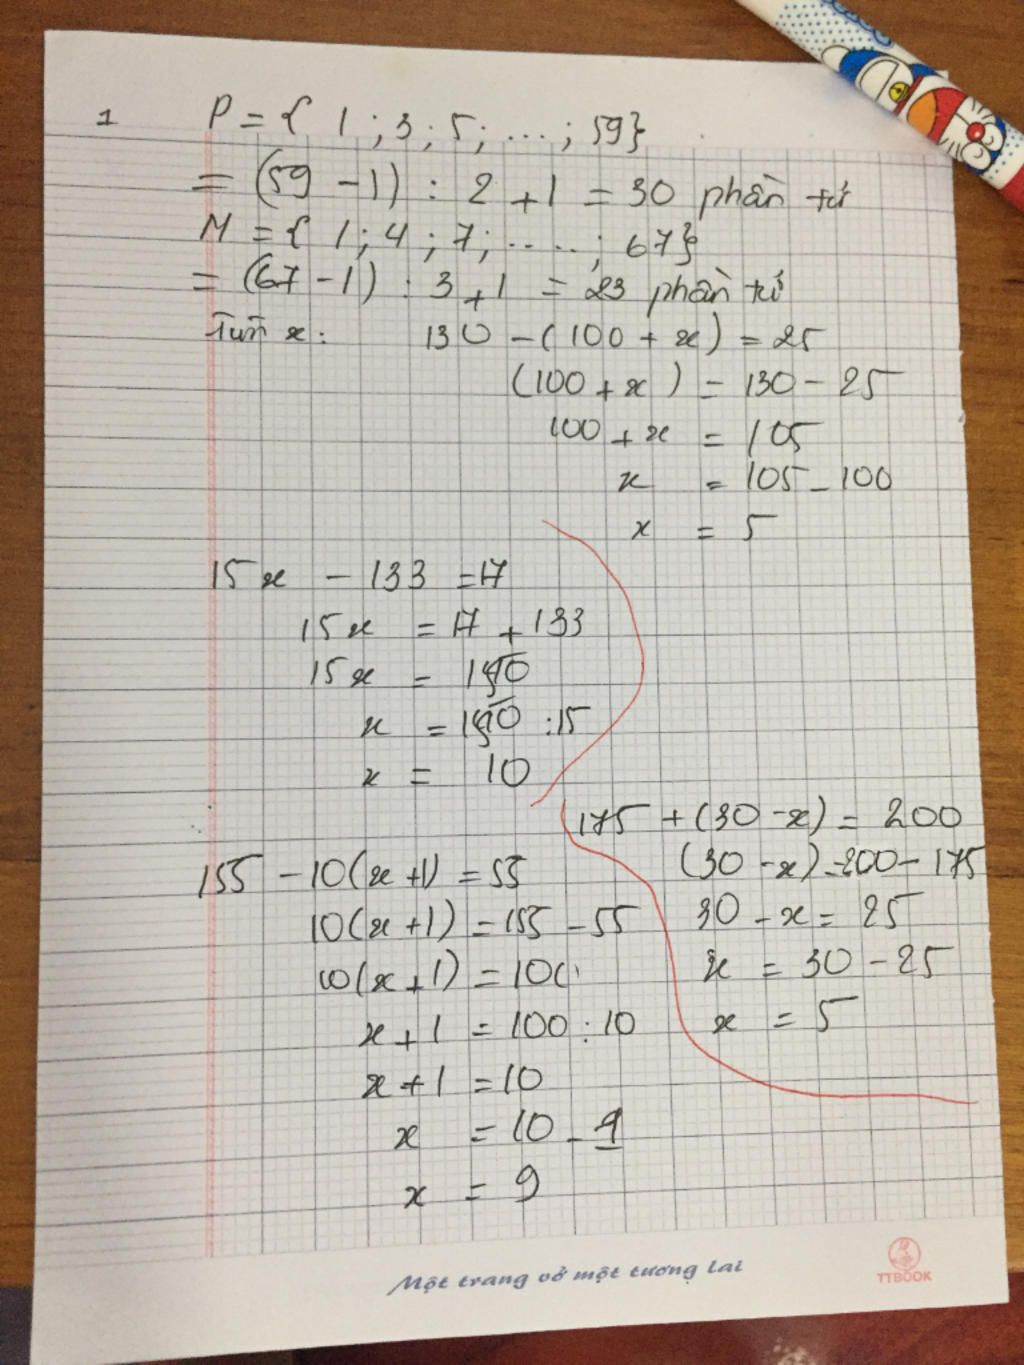 1 P = { 1 ; 3 ; 5 ; ... ; 59}
= (59 - 1) : 2 + 1 = 30 phần tử
M = { 1 ; 4 ; 7 ; ..... ; 67}
= (67 - 1) : 3 + 1 = 23 phần tử
Tìm x : 130 - ( 100 + x ) = 25
(100 + x ) = 130 - 25
100 + x = 105
x = 105 - 100
x = 5
15x - 133 = 17
15x = 17 + 133
15x = 150
x = 150 : 15
x = 10
155 - 10(x+1) = 55
10(x+1) = 155 - 55
10(x+1) = 100
x + 1 = 100 : 10
x + 1 = 10
x = 10 - 1
x = 9
175 + (30 - x) = 200
(30 - x) = 200 - 175
30 - x = 25
x = 30 - 25
x = 5
Một trang vở một tương lai
TTBOOK